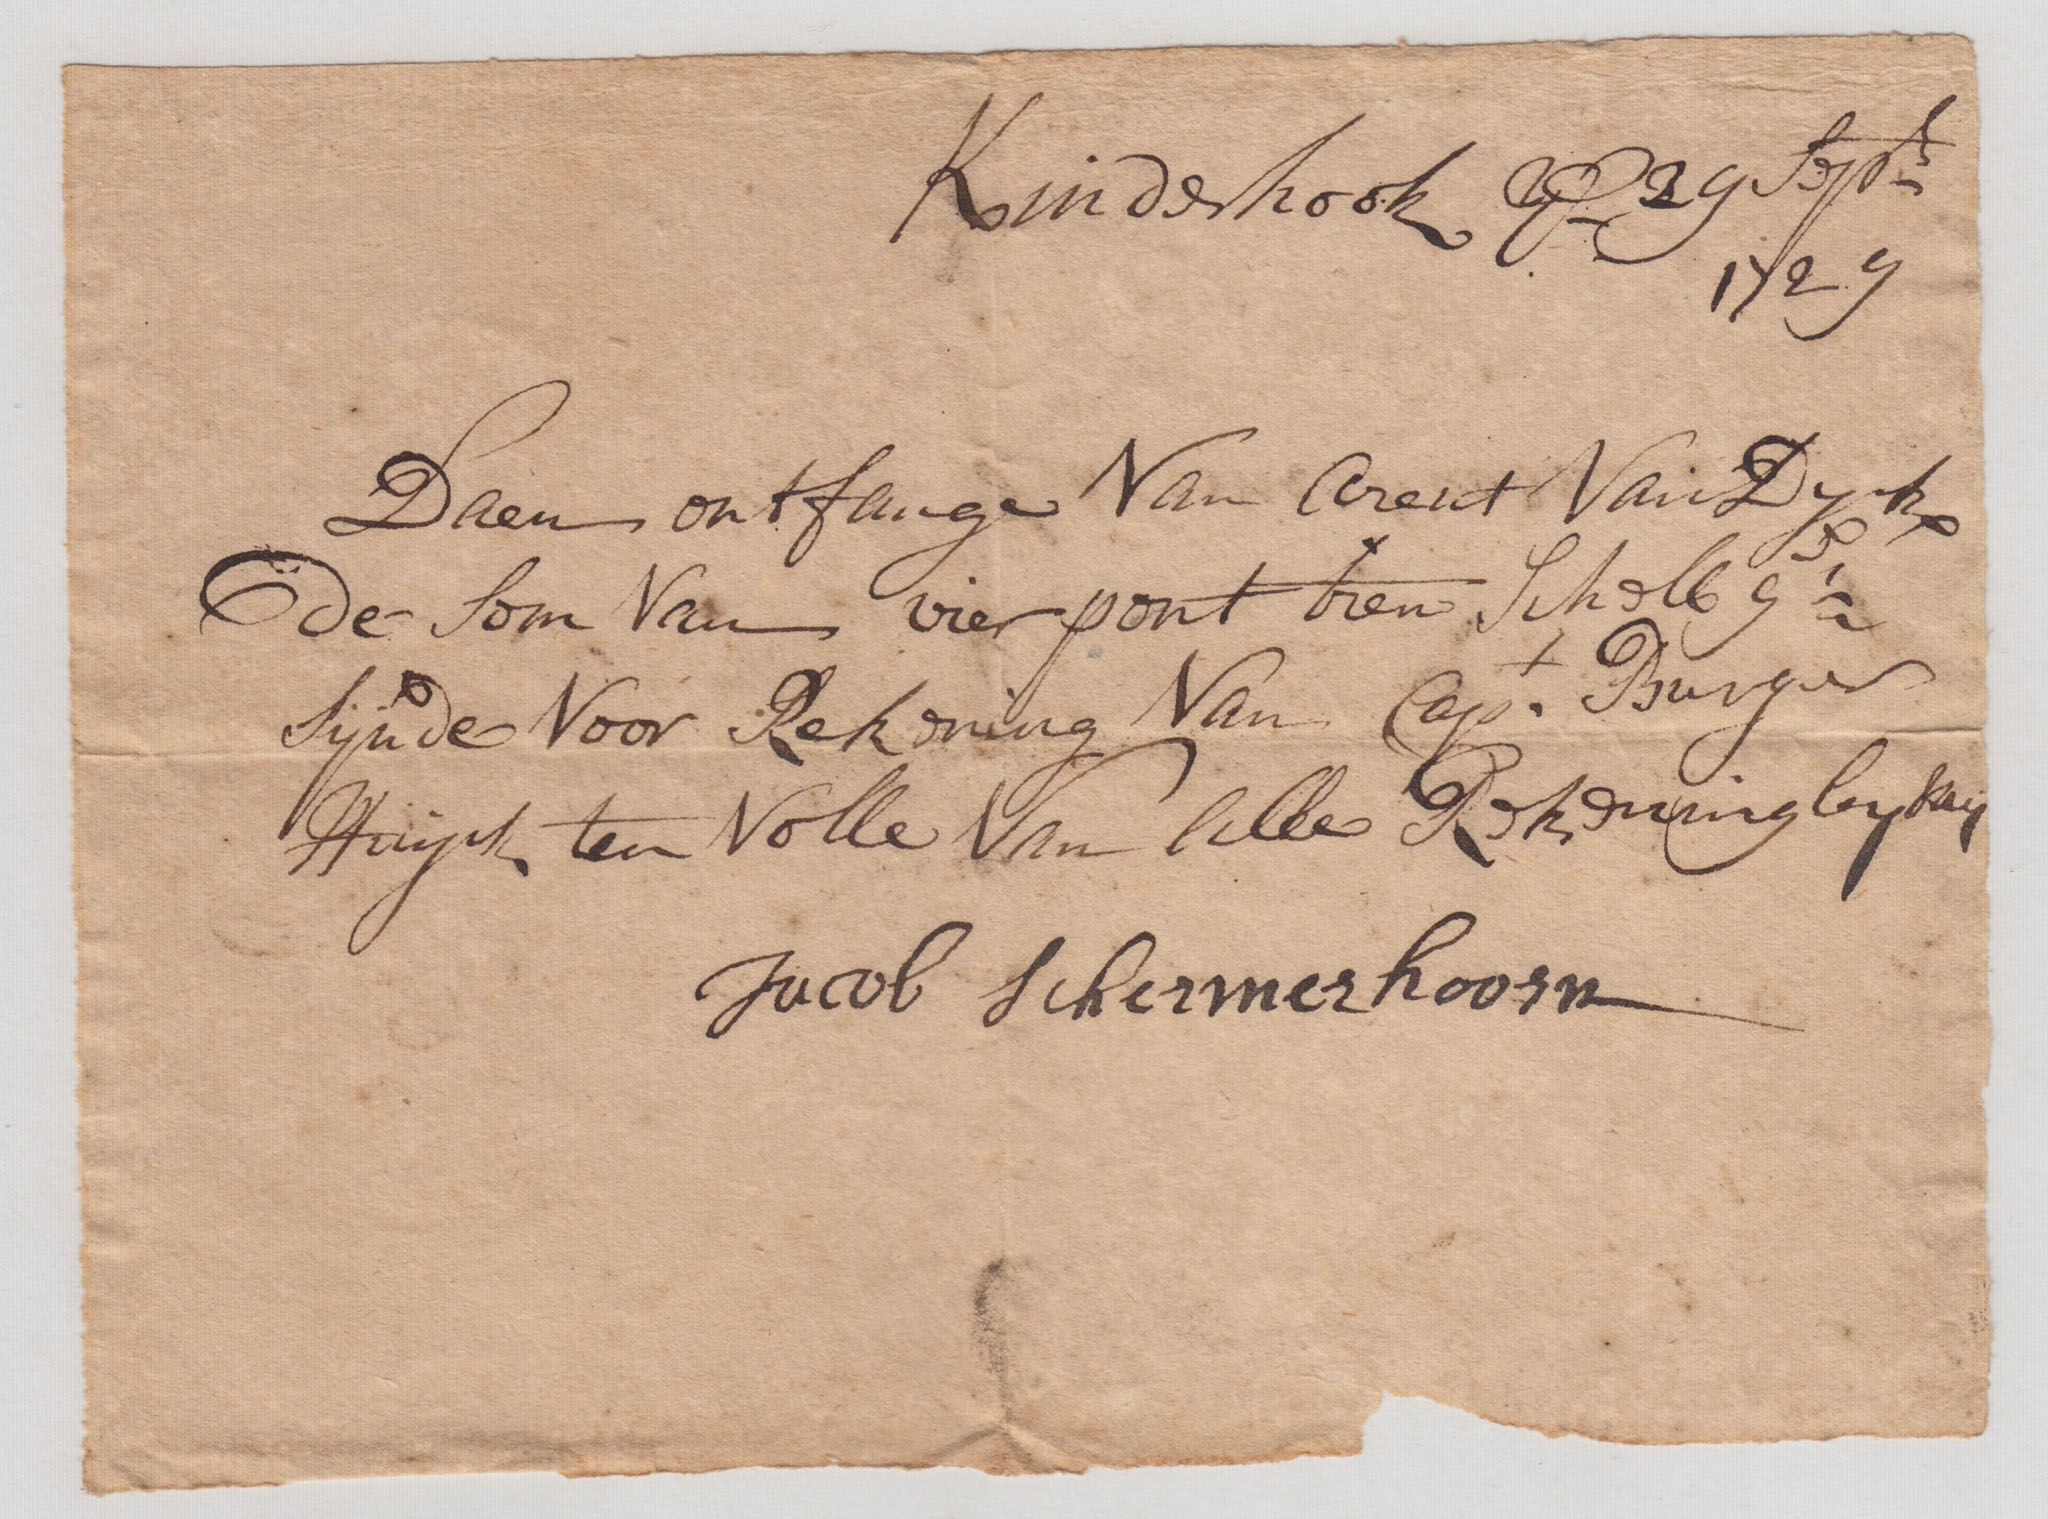 Kinderhook 29 Septr
1729
Daen ontfange Van Arent Van Dyck
de Som Van vier pont tien Schell 9
Sijnde Voor Rekoning Van Capt. Burger
Huyck ten Volle Van alle Rekoning
Jacob Schermerhoorn